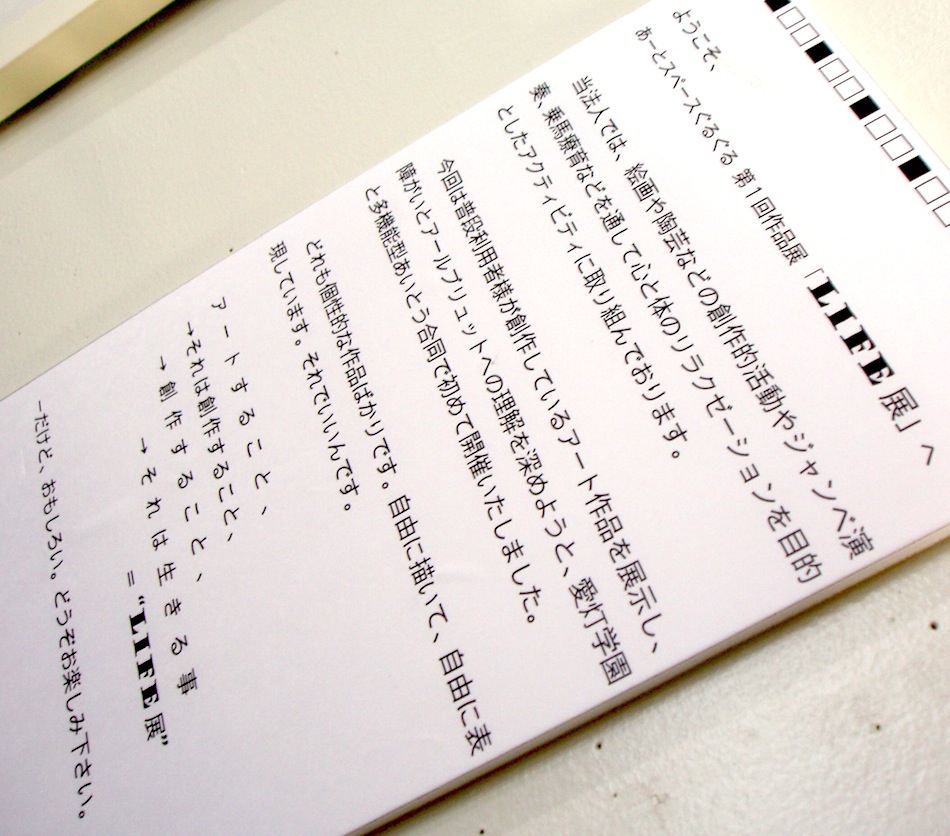 ようこそ、
あーとスペースぐるぐる 第1回作品展「LIFE展」へ
当法人では、絵画や陶芸などの創作的活動やジャンベ演
奏、乗馬療育などを通して心と体のリラクゼーションを目的
としたアクティビティに取り組んでおります。
今回は普段利用者様が創作しているアート作品を展示し、
障がいとアールブリュットへの理解を深めようと、愛灯学園
と多機能型あいとう合同で初めて開催いたしました。
どれも個性的な作品ばかりです。自由に描いて、自由に表
現しています。それでいいんです。
アートすること、
→それは創作すること、
→創作すること、
→それは生きる事
＝“LIFE展”
―だけど、おもしろい。どうぞお楽しみ下さい。